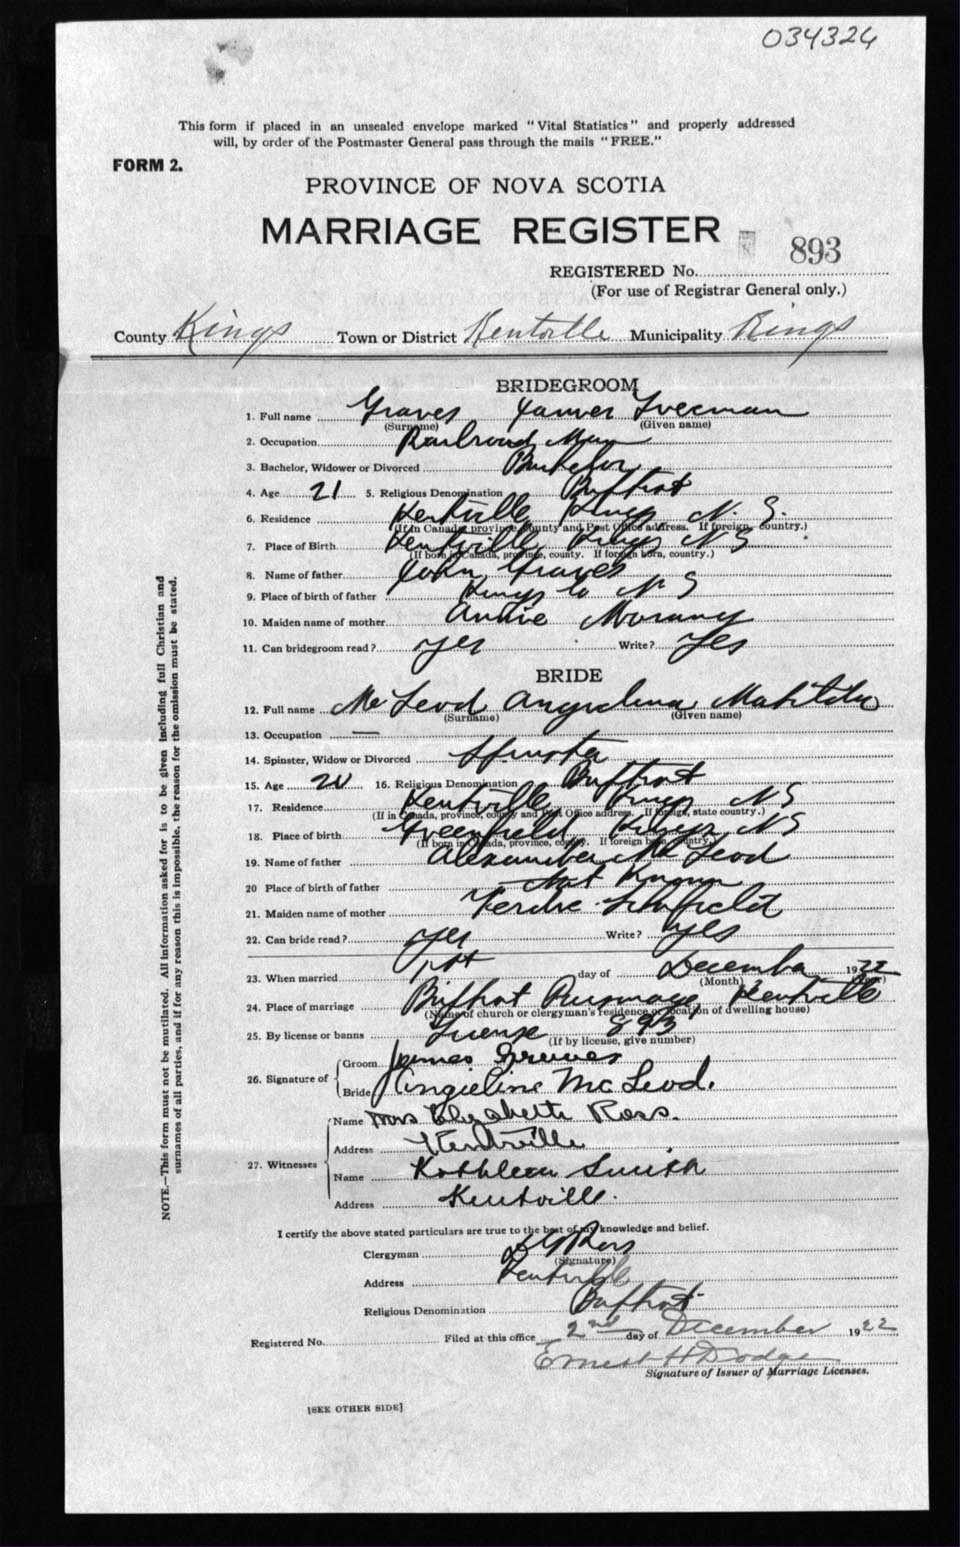 034324
This form if placed in an unsealed envelope marked "Vital Statistics" and properly addressed
will, by order of the Postmaster General pass through the mails "FREE."
FORM 2.
PROVINCE OF NOVA SCOTIA
MARRIAGE REGISTER
REGISTERED No. 893
(For use of Registrar General only.)
County Kings Town or District Kentville Municipality Kings
BRIDEGROOM
1. Full name Graves James Freeman
(Surname) (Given name)
2. Occupation Railroad Man
3. Bachelor, Widower or Divorced Bachelor
4. Age 21 5. Religious Denomination Baptist
6. Residence Kentville Kings N. S.
(If in Canada, province, county and Post Office address. If foreign, country.)
7. Place of Birth Kentville Kings N S
(If born in Canada, province, county. If foreign born, country.)
8. Name of father John Graves
9. Place of birth of father Kings Co N S
10. Maiden name of mother Annie
11. Can bridegroom read? yes Write? Yes
BRIDE
12. Full name McLeod Matilda
(Surname) (Given name)
13. Occupation —
14. Spinster, Widow or Divorced Spinster
15. Age 16. Religious Denomination Baptist
17. Residence Kentville Kings N S
(If in Canada, province, county and Post Office address. If foreign, state country.)
18. Place of birth Greenfield, Kings, N S
(If born in Canada, province, county. If foreign born, country.)
19. Name of father Alexander McLeod
20 Place of birth of father Not Known
21. Maiden name of mother Schofield
22. Can bride read? yes Write? yes
23. When married 1st day of December 1922
(Month) (Year)
24. Place of marriage Baptist Parsonage, Kentville
(Name of church or clergyman's residence or location of dwelling house)
25. By license or banns License 893
(If by license, give number)
26. Signature of Groom James Graves
Bride Angieline McLeod.
27. Witnesses Name Mrs Elizabeth Ross.
Address Kentville
Name Kathleen Smith
Address Kentville.
I certify the above stated particulars are true to the best of my knowledge and belief.
Clergyman Ross
(Signature)
Address Kentville
Religious Denomination Baptist
Registered No. Filed at this office 2nd day of December 1922
Ernest H Dodge
Signature of Issuer of Marriage Licenses.
[SEE OTHER SIDE]
NOTE.—This form must not be mutilated. All information asked for is to be given including full Christian and
surnames of all parties, and if for any reason this is impossible, the reason for the omission must be stated.